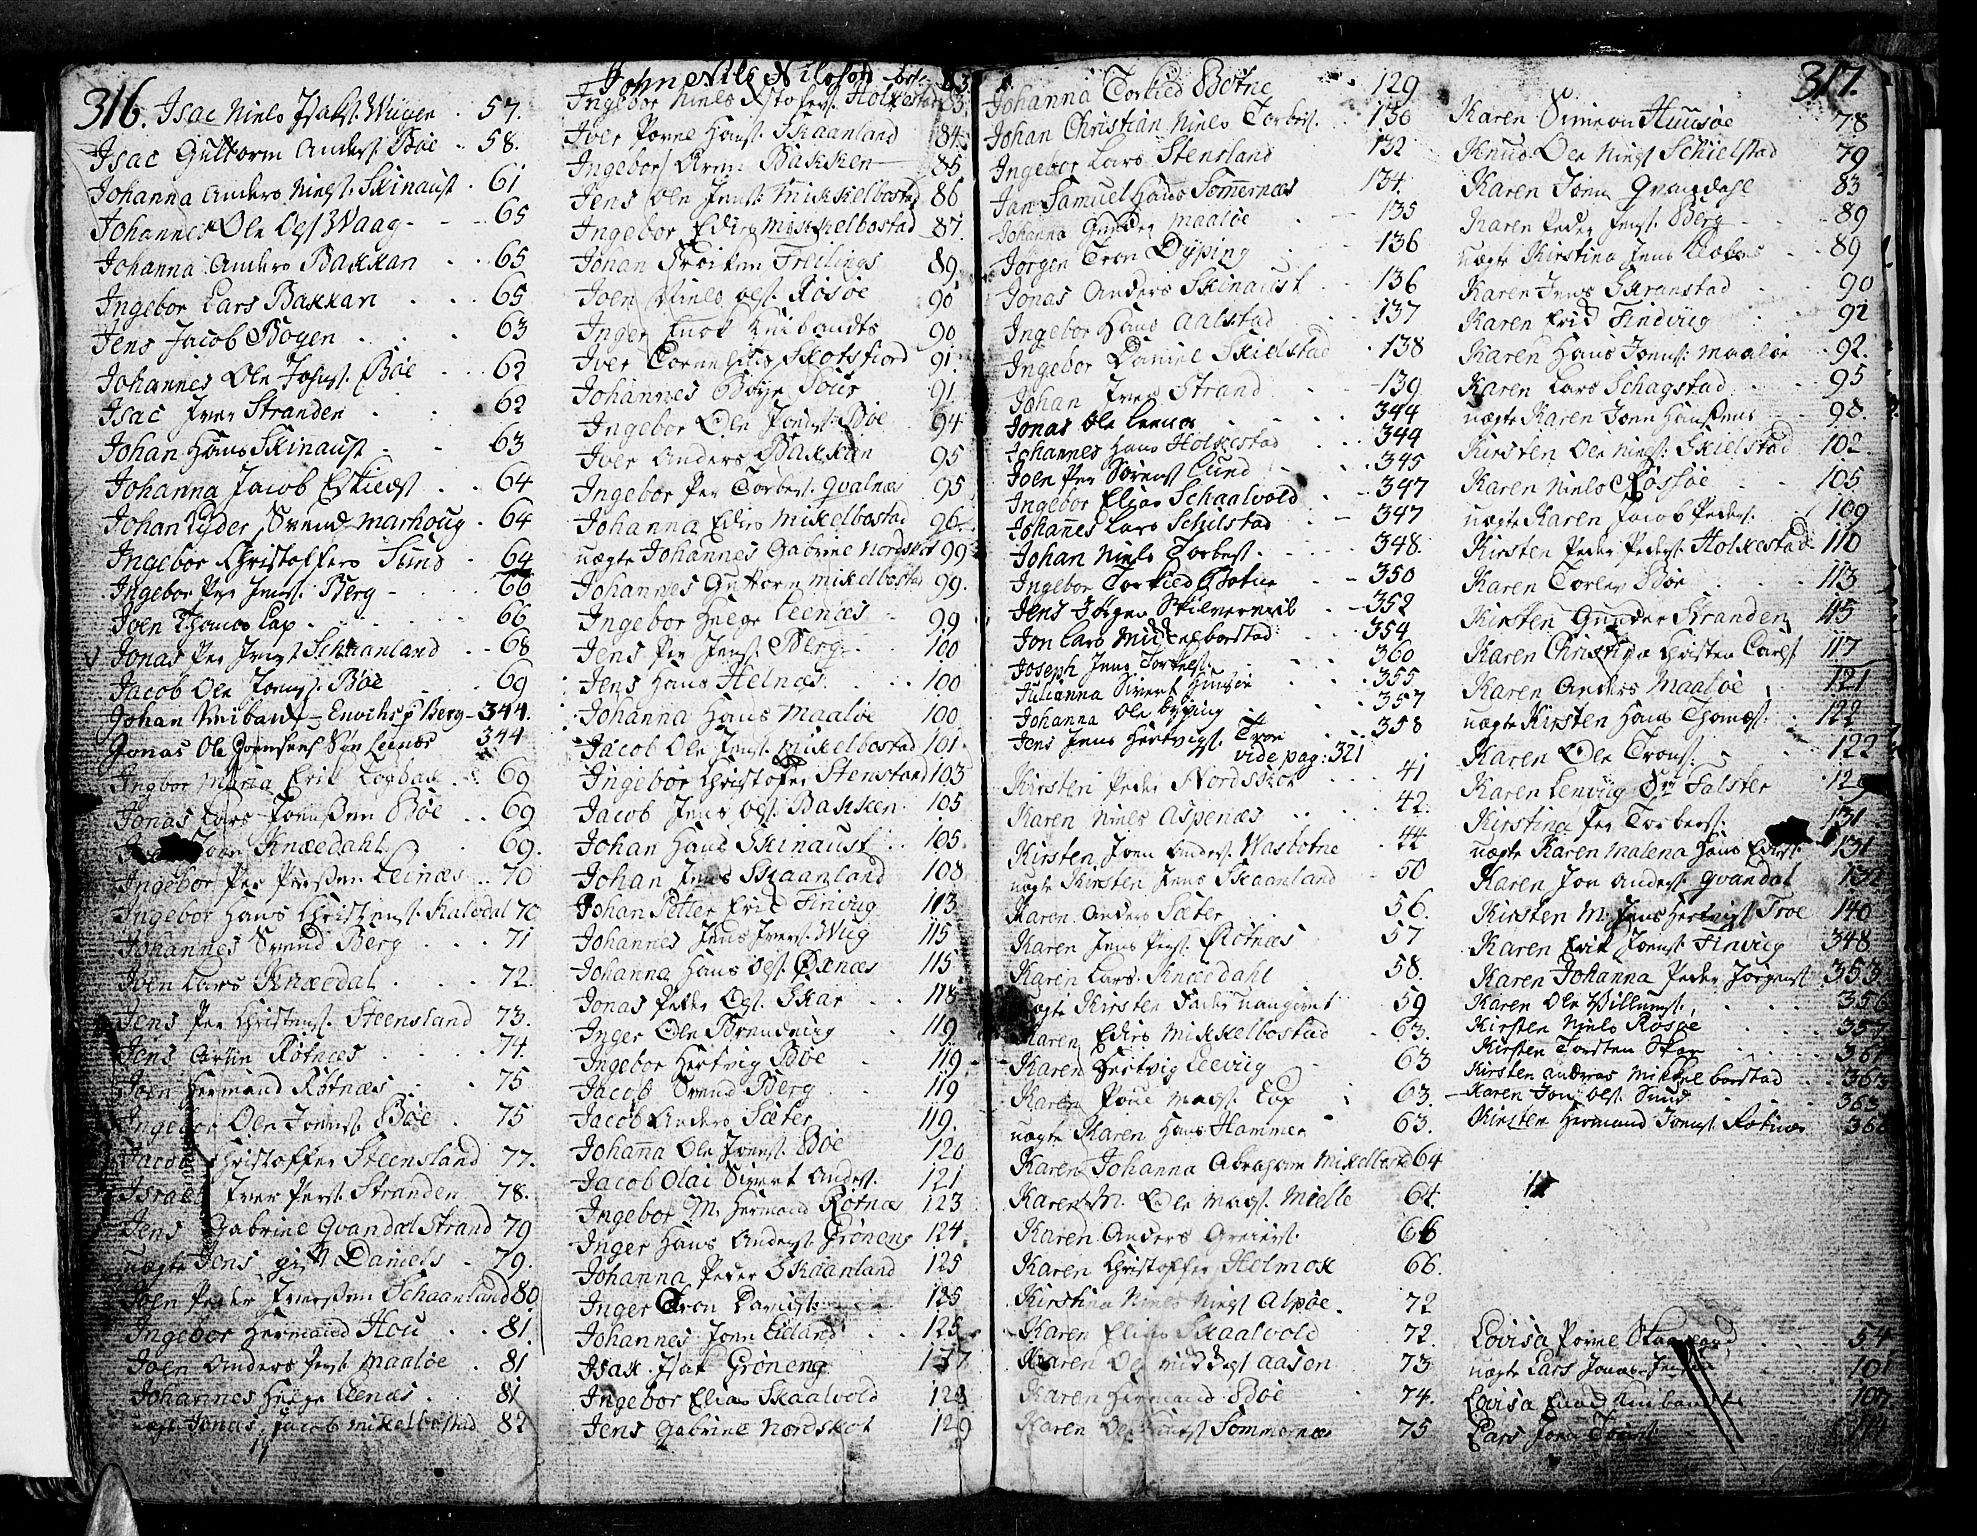 316.
Isac Niels Isaks. Wiigen . 57.
Isac Guttorm Anders. Bøe .. 58.
Johanna Anders Niels. Skinaust . 61
Johannes Ole Ols. Waag - - - 65
Johanna Anders Bakkan . . 65
Ingebor Lars Bakkan . . . 65
Jens Jacob Bogen . . . 63
Johannes Ole Johns. Bøe . . 62
Isac Iver Stranden . . 62
Johan Hans Skinaust - - 63
Johanna Jacob Eskilds. . . 64
Johan Lyder Svend Marhoug . 64
Ingebor Christoffers Sund . 64
Ingebor Per Jens. Berg - . . 66
Joen Thomas Lap . . . . 66
Jonas Per Schaanland . . 68
Jacob Ole Joens. Bøe 69
Johan Berg - 344.
Jonas Ole Søn Leenæs 344
Ingbor Maria Erik . . 69
Jonas Lars Joenssen Bøe . . 69
Joen Knædahl . 69.
Ingebor Per Leinæs . . 70
Ingebor Hans Christens. Kalvdal 70
Johannes Svend Berg . . . 71
Iven Lars Knædal . . . 72.
Jens Per Christens. Steensland 73.
Jens Røtnæs . . . 74.
Joen Hermand Røtnæs . . 75
Ingebor Ole Joens. Bøe . 75
Jacob Christoffer Steensland 77.
Israel Iver Pers. Stranden 78.
Jens Gabriel Qvandal Strand 79
uægte Jens Daniels . 79.
Joen Peder Schaanland 80
Ingebor Hermand Hou . . 81.
Joen Anders Jens. Maaløe . 81
Johannes Helge Leenæs . 81
uægt Jonas Jacob Mikelbostad 82
John Nils Nilssøn 83
Ingebor Niels Holkestad 83.
Iver Povne Hans. Skaanland 84.
Ingebor Arne Bakken 85
Jens Ole Jens. Mikkelbostad 86
Ingebor Edis Mikkelbostad 87.
Johan Freilings 89
Joen Niels Ols. Røsøe 90
Inger Enok 90
Iver Cornelius Skotsfiord 91.
Johannes Boye 91.
Ingebor Ole Joens. Bøe 94
Iver Anders Bakken 95
Ingebor Per Torbers. Qvalnæs 95
Johanna Edis Mikelbostad 96.
uægte Johannes Gabriel Nordskot 99
Johannes Guttorm Mikelbostad 99.
Ingebor Helge Leenæs . 99
Jens Per Jens. Berg . . 100
Jens Hans Helnæs . . . 100
Johanna Hans Maaløe 100
Jacob Ole Jens. Mikelbostad 101
Ingebor Christofer Stensland 103
Jacob Jens Ols. Bakken . 105
Johan Hans Skinaust . . 105.
Johan Jens Skaanland 108
Johan Petter Erik Finviig 113
Johannes Jens Ivers. Wiig 115
Johanna Hans Ols. Øxnæs 115
Jonas Peder Ols. Skar . . 118
Inger Ole Brendviig . . 119
Ingebor Hertvig Bøe . . 119
Jacob Svend Berg . . 119
Jacob Anders Sæter . . 119.
Johanna Ole Joens. Bøe . 120
Jacob Olai Sivert Anders. 121
Ingebor M. Hermand Røtnæs 123
Inger Hans Anders. Grøneng 124.
Johanna Peder Skaanland 125
Inger Tron Davids. 125
Johannes Joen Eiland . . 125.
Isak Isak Grøneng 127
Ingebor Elias Skaalvold 128
Jens Gabriel Nordskot 129
317.
Johanna Torkild Botne . 129
Johan Christian Niels Torbers. . 130
Ingebor Lars Stensland 132
Jan Samuel Hans Sommernæs 134.
Johanna Gunder Maaløe . - 135
Jørgen Tron Dyping . - 136
Jonas Anders Skinaust . . 136
Ingebor Hans Aalstad . . 137
Ingebor Daniel Skielstad . 138
Johan Iver Strand - 139
Jonas Ole Leenæs . . . 344
Johannes Hans Holkestad . . . 344
Joen Per Sørens. Lund - . . 345
Ingebor Elias Schaalvold . . . 347
Johannes Lars Schilstad . - 347
Johan Niels Torbers. . - - - 348.
Ingebor Torkild Botne . - - 350
Jens Jørgen . . - 352
Jon Lars Mikkelborstad . . . 354
Joseph Jens Torkels. . . . 360
Julianna Sivert Huusøe . . . 355
Johanna Ole Dyping . . . 357
Jens Jens Hertvigs. Troe . . 358
vide pag: 321
Kirsten Peder Nordskot . . 41
Karen Niels Aspenæs . . . . 42.
Kirsten Joen Anders. Wasbotne . 44
uægte Kirsten Jens Skaanland . 50
Karen Anders Sæter . . 56.
Karen Jens Pers. Røtnæs 57
Karen Lars Knædahl 58.
uægte Kirsten Fader uangivet 59
Karen Edis Mikkelbostad . 63.
Karen Hertvig Leeviig - 63
Karen Povel Mags. Lap . 63.
uægte Karen Hans Hammer 63.
Karen Johanna Abraham Mikelbostad 64
Karen M. Ole Mags. Misle 64.
Karen Anders Greiers. 66
Karen Christoffer Holmok 66.
Kirstina Niels Niels. Alpøe . 72
Karen Elias Skaalvold 72.
Karen Ole Aasen . 73
Karen Hermand Bøe . 74.
Karen Ole Sommernæs 75
Karen Simeon Huusøe 78
Knud Ole Niels. Schielstad 79
Karen Joen Qvandahl 83
Karen Peder Jens. Berg - - 89
uægte Kirstina Jens . . 89
Karen Jens Skranstad . . 90
Karen Erik Findviig . . 92
Karen Hans Joens. Maaløe . . 92.
Karen Lars Schagstad . . . 95
uægte Karen Joen Hanssens . . 98.
Kirsten Ole Niels. Skielstad . 102.
Karen Niels Røssøe . . . 105
uægte Karen Jacob Peders. 109
Kirsten Peder Peders. Holkestad 110
Karen Torlev Bøe . . 113
Kirsten Gunder Stranden 115
Karen Christina Christen Carls. 117
Karen Anders Maaløe . 121
uægte Kirsten Hans Thomas. . 122
Karen Ole Trons. . 122
Karen Lenviig Falster . 129
Kirstina Per Torbers. 131.
uægte Karen Malena Hans Edis. 131
Karen Jon Anders. Qvandal 132
Kirsten M. Jens Hertvigs. Troe 140
Karen Erik Joens. Finviig 348
Karen Johanna Peder Jørgens. 353
Karen Ole Willums. . . . 356
Kirsten Niels Røsøe . . . 357
Kirsten Torsten Skar . . . 361
Kirsten Andreas Mikkelborstad . . 363
Karen Jon Ols. Sund . . . 363
Kirsten Hermand Joens. Røtnæs 36
Lovisa Povne Skaanland . . . 54
uægte Lars Jonas . . 101
Lovisa 107.
Lars Joen 114